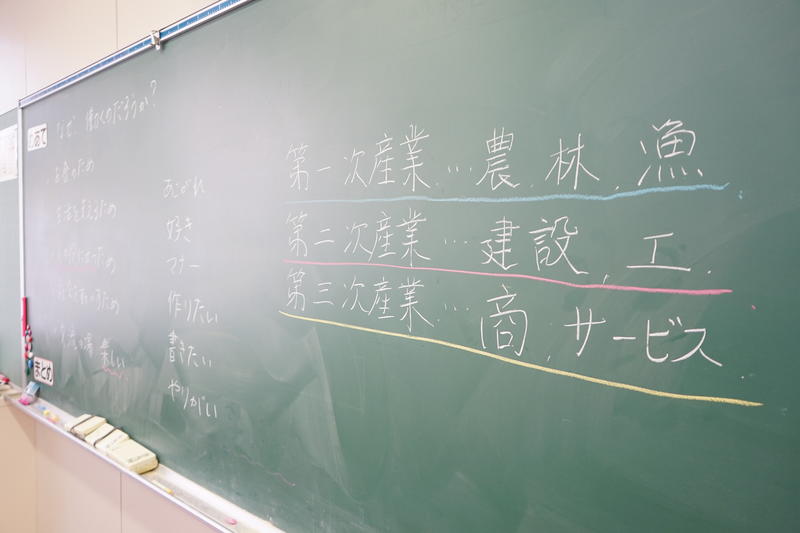 めあて
なぜ、働くのだろうか?
お金のため
生活を支えるため
あこがれ
好き
マナー
作りたい
書きたい
やりがい
楽しい
まとめ
第一次産業…農、林、漁
第二次産業…建設、工、
第三次産業…商、サービス